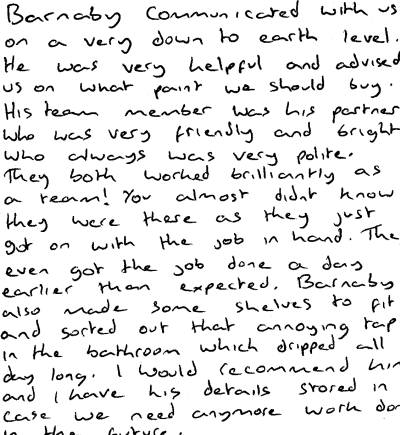 Barnaby communicated with us
on a very down to earth level.
He was very helpful and advised
us on what paint we should buy.
His team member was his partner
who was very friendly and bright
who always was very polite.
They both worked brilliantly as
a team! You almost didnt know
they were there as they just
got on with the job in hand. The
even got the job done a day
earlier than expected. Barnaby
also made some shelves to fit
and sorted out that annoying tap
in the bathroom which dripped all
day long. I would recommend him
and I have his details stored in
case we need anymore work don
in the future.